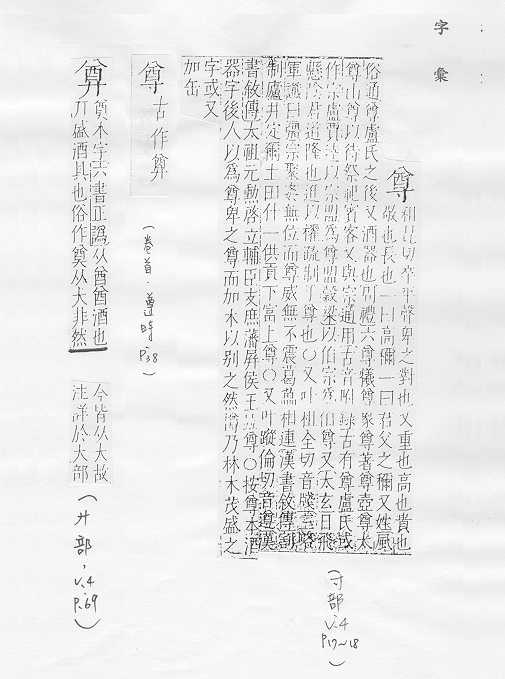 字彙
尊 租昆切卒平聲卑之對也又重也高也貴也
敬也長也一曰高稱一曰君父之稱又姓風
俗通尊盧氏之後又酒器也周禮六尊犧尊象尊著尊壺尊太
尊山尊以待祭祀賓客又與宗通用古音附錄古有尊盧氏或
作宗盧賈逵以宗盟為尊盟穀梁以伯宗為伯尊又太玄日飛
懸陰君道隆也進以欂疏制于尊也○又叶租全切音
軍讖曰彊宗聚姦無位而尊威無不震葛藟相連漢書敘傳
制廬井定爾土田什一供貢下富上尊○又叶蹤倫切音遵漢
書敘傳太祖元勳啓立輔臣支庶藩屏侯王並尊○按尊本酒
器字後人以為尊卑之尊而加木以別之然樽乃林木茂盛之
字或又
加缶
(寸部 v.4 P17~18)
尊 古作尊
(卷首·遵時 P.38)
奠本字六書正譌从酋酋酒也
丌盛酒具也俗作奠从大非然
今皆从大故
注詳於大部
(廾部, v.4 P.69)